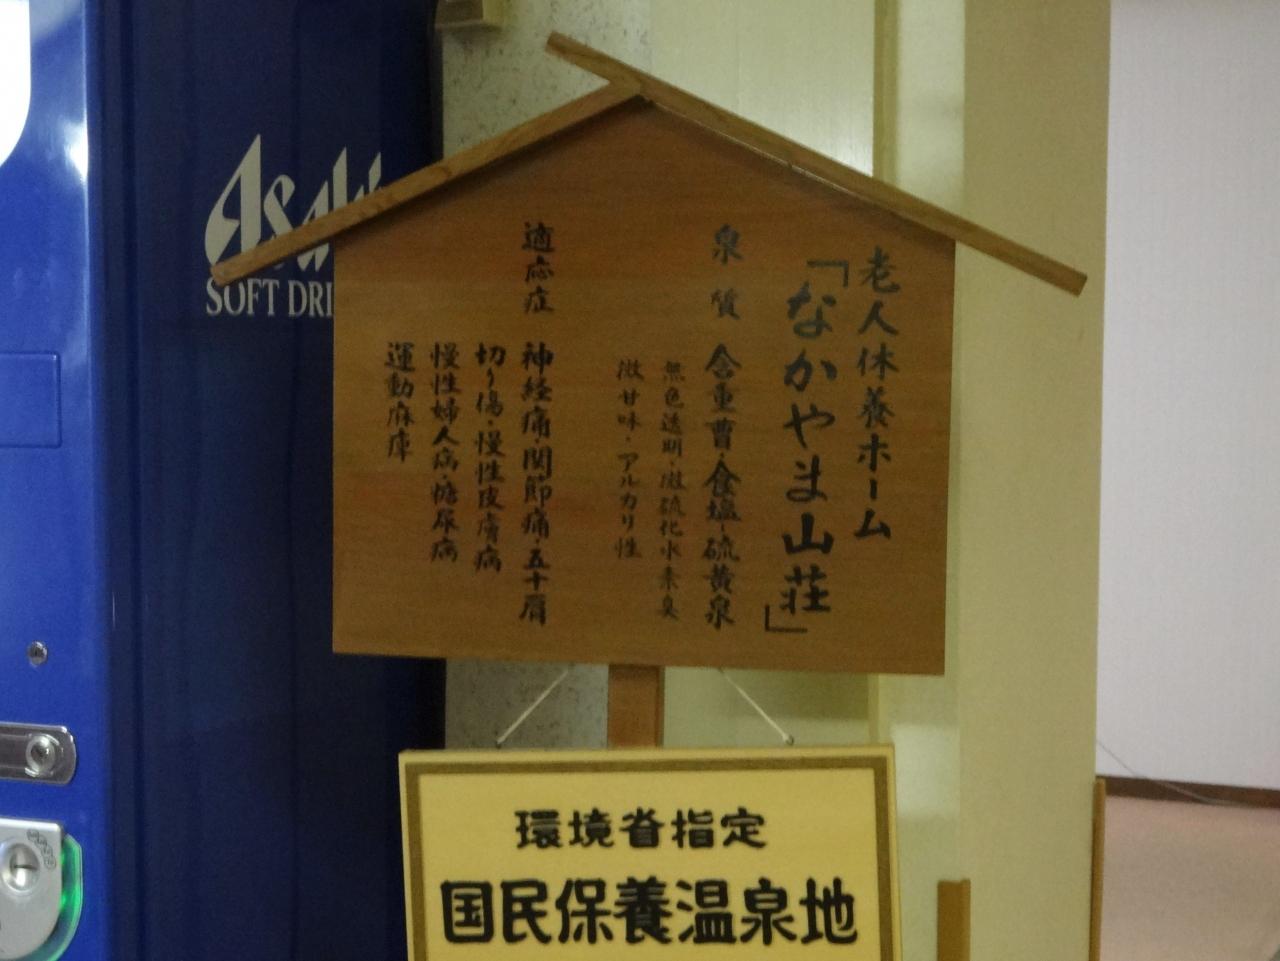 老人休養ホーム
「なかやま山荘」
泉質 含重曹・食塩・硫黄泉
無色透明・微硫化水素臭
微甘味・アルカリ性
適応症 神経痛・関節痛・五十肩
切り傷・慢性皮膚病
慢性婦人病・糖尿病
運動麻痺
環境省指定
国民保養温泉地
Asahi
SOFT DRI